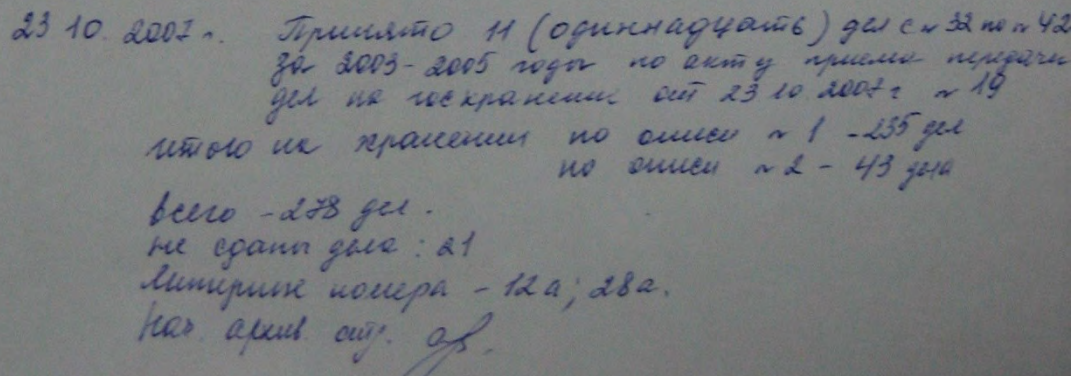 23 10. 2007 г. Принято 11 (одиннадцать) дел с № 32 по № 42
за 2003-2005 годы по акту приема передачи
дел на госхранение от 23 10 2007 г № 19
итого на хранении по описи № 1 - 235 дел
по описи № 2 - 43 дела
всего - 278 дел.
не сданы дела: 21
Литерные номера - 12а; 28а.
Нач. архив. отд.